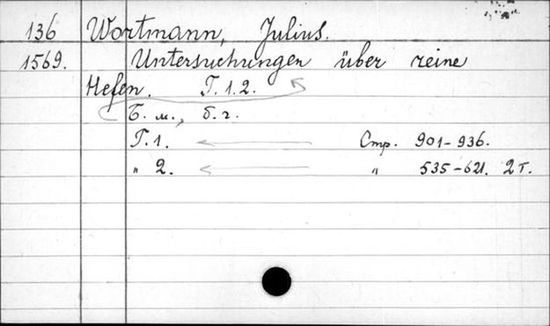 136 Wortmann, Julius.
1569. Untersuchungen über reine
Hefen. T. 1. 2.
Б. м., б. г.
T. 1. Стр. 901-936.
" 2. " 535-621. 2 т.